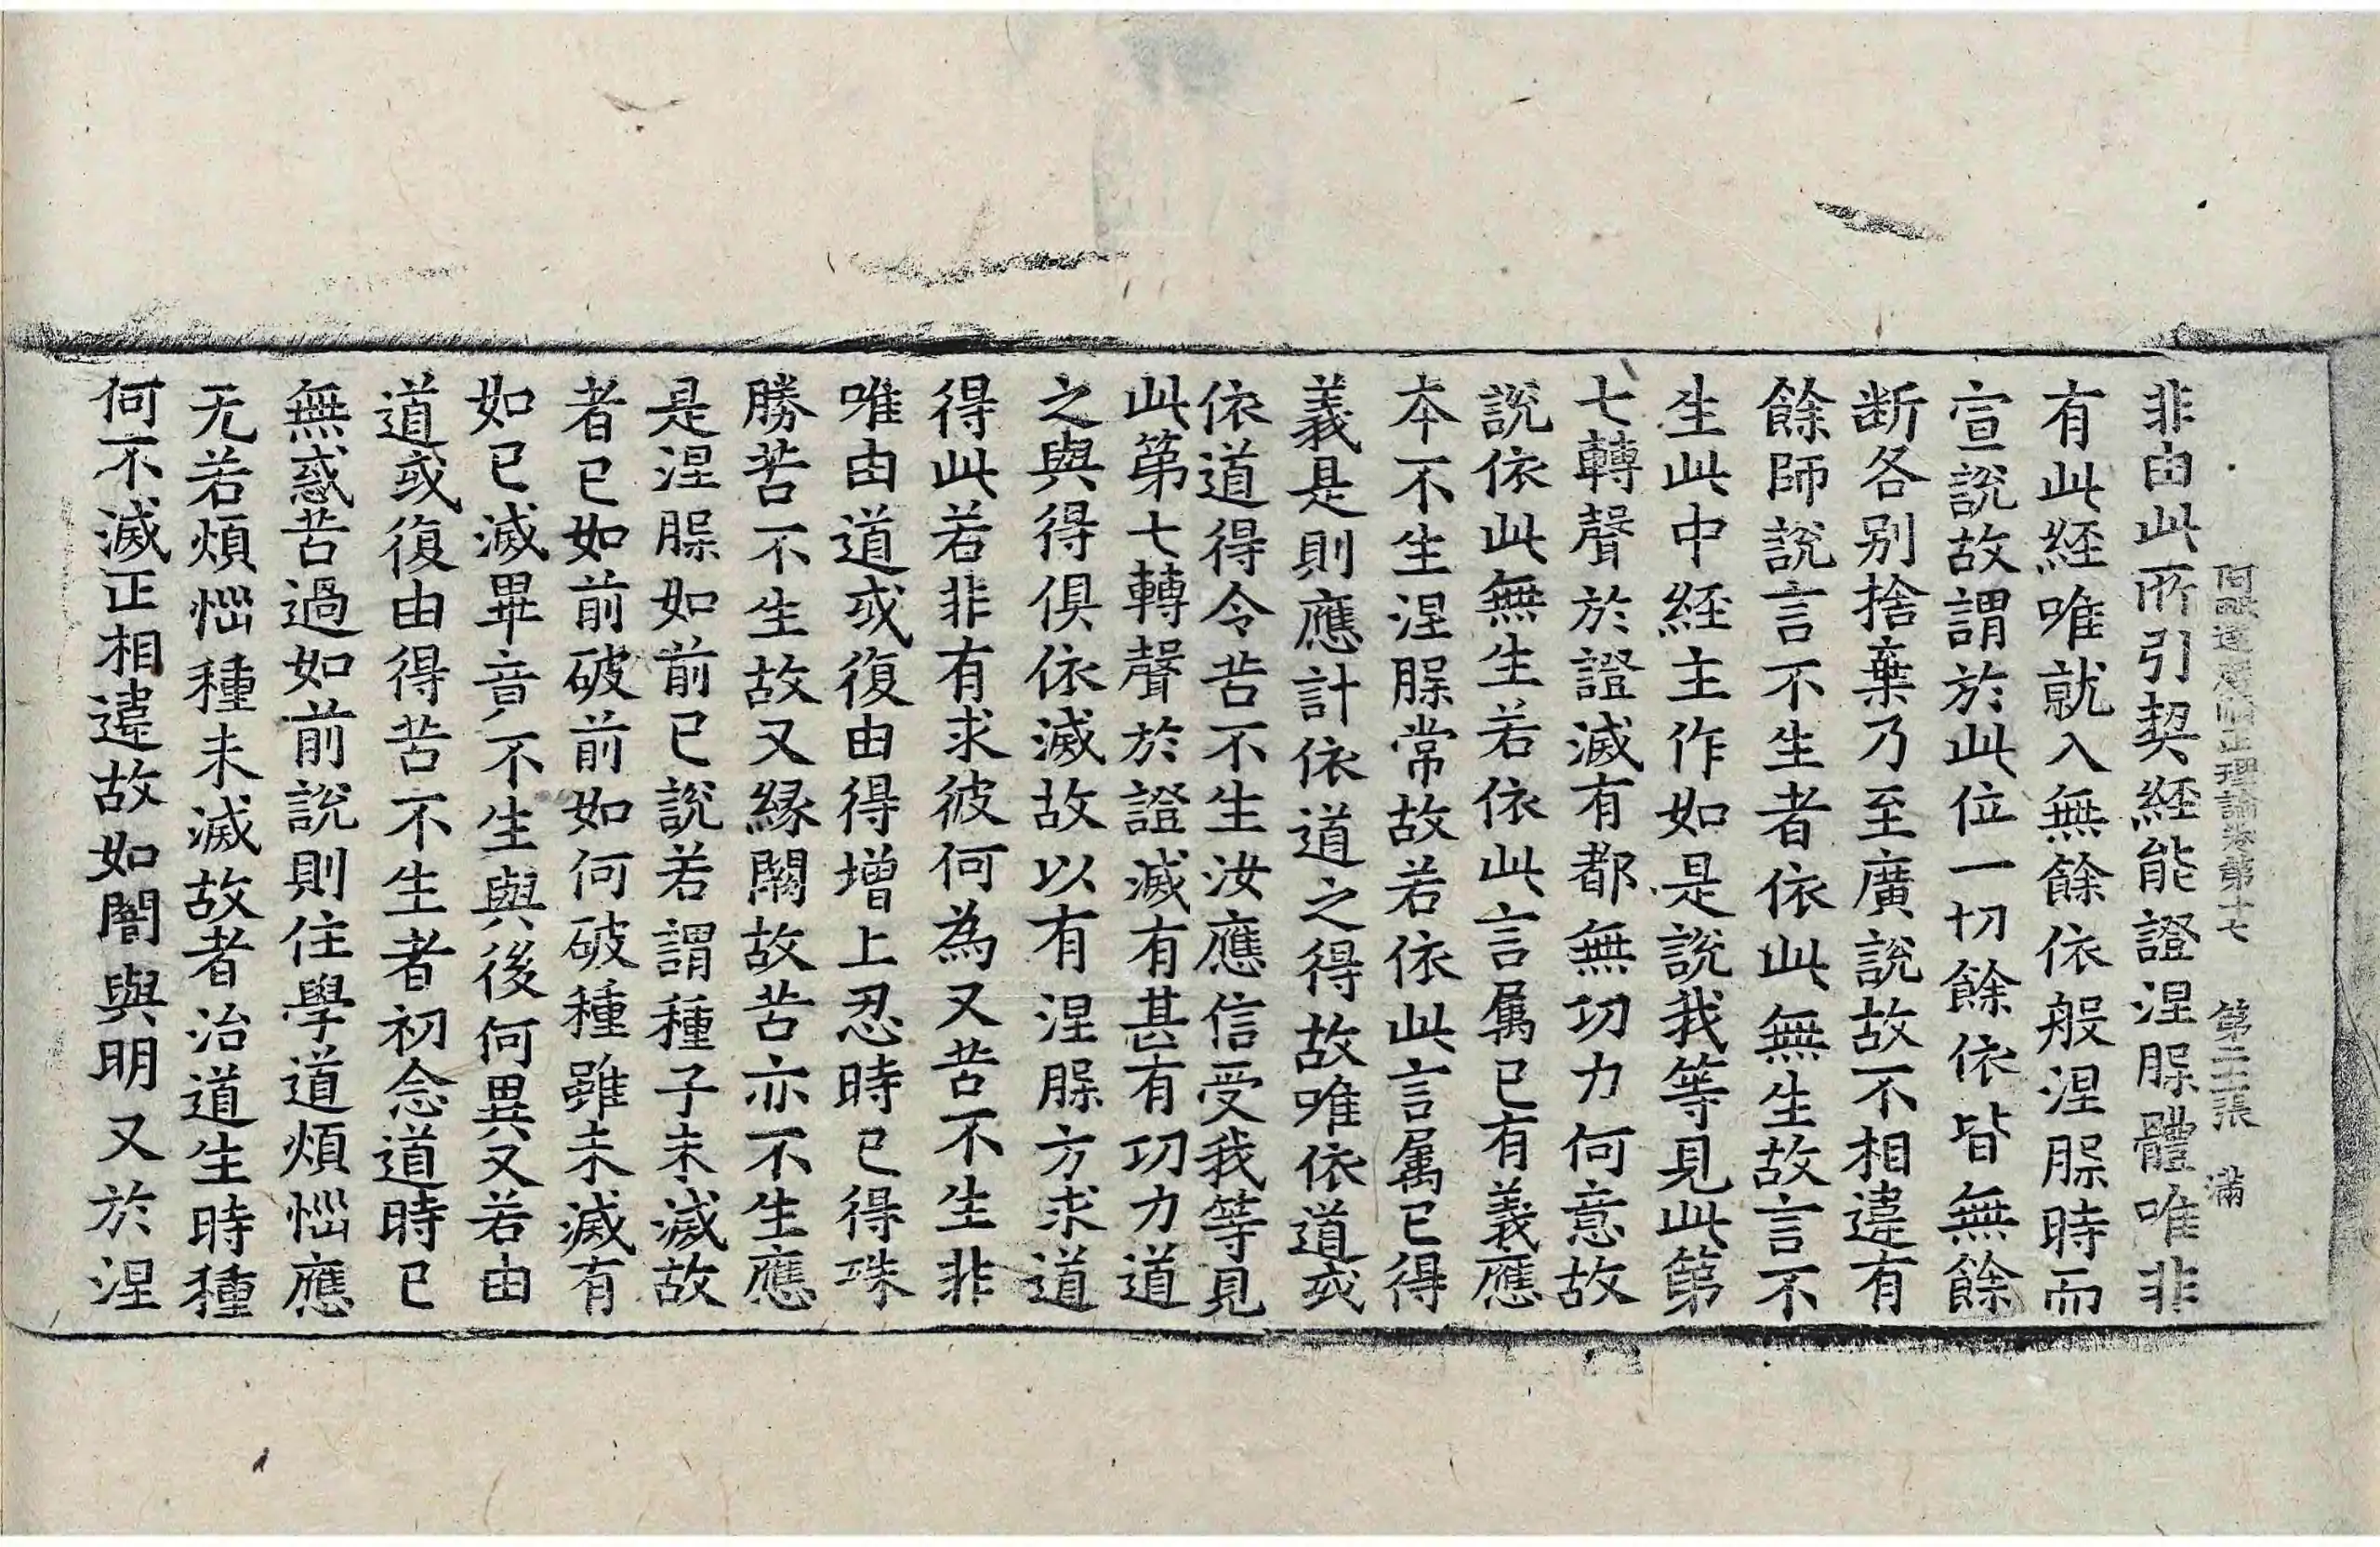 阿毗達磨順正理論卷第十七 第二十三張 滿
非由此所引契經能證涅槃體唯非
有此經唯就入無餘依般涅槃時而
宣說故謂於此位一切餘依皆無餘
斷各別捨棄乃至廣說故不相違有
餘師說言不生者依此無生故言不
生此中經主作如是說我等見此第
七轉聲於證滅有都無功力何意故
說依此無生若依此言屬已有義應
本不生涅槃常故若依此言屬已得
義是則應計依道之得故唯依道或
依道得令苦不生汝應信受我等見
此第七轉聲於證滅有甚有功力道
之與得俱依滅故以有涅槃方求道
得此若非有求彼何為又苦不生非
唯由道或復由得增上忍時已得殊
勝苦不生故又緣闕故苦亦不生應
是涅槃如前已說若謂種子未滅故
者已如前破前如何破種雖未滅有
如已滅畢竟不生與後何異又若由
道或復由得苦不生者初念道時已
無惑苦過如前說則住學道煩惱應
无若煩惱種未滅故者治道生時種
何不滅正相違故如闇與明又於涅